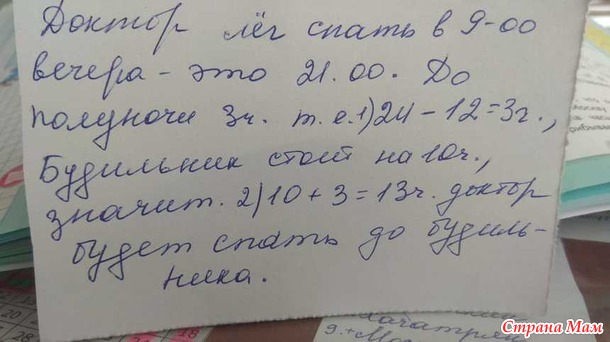 Доктор лёг спать в 9-00
вечера - это 21.00. До
полуночи 3ч. т.е.1)24-12=3г.,
Будильник стоит на 10ч.,
значит. 2)10+3=13ч. доктор
будет спать до будиль-
ника.
9.+Мо
Страна Мам